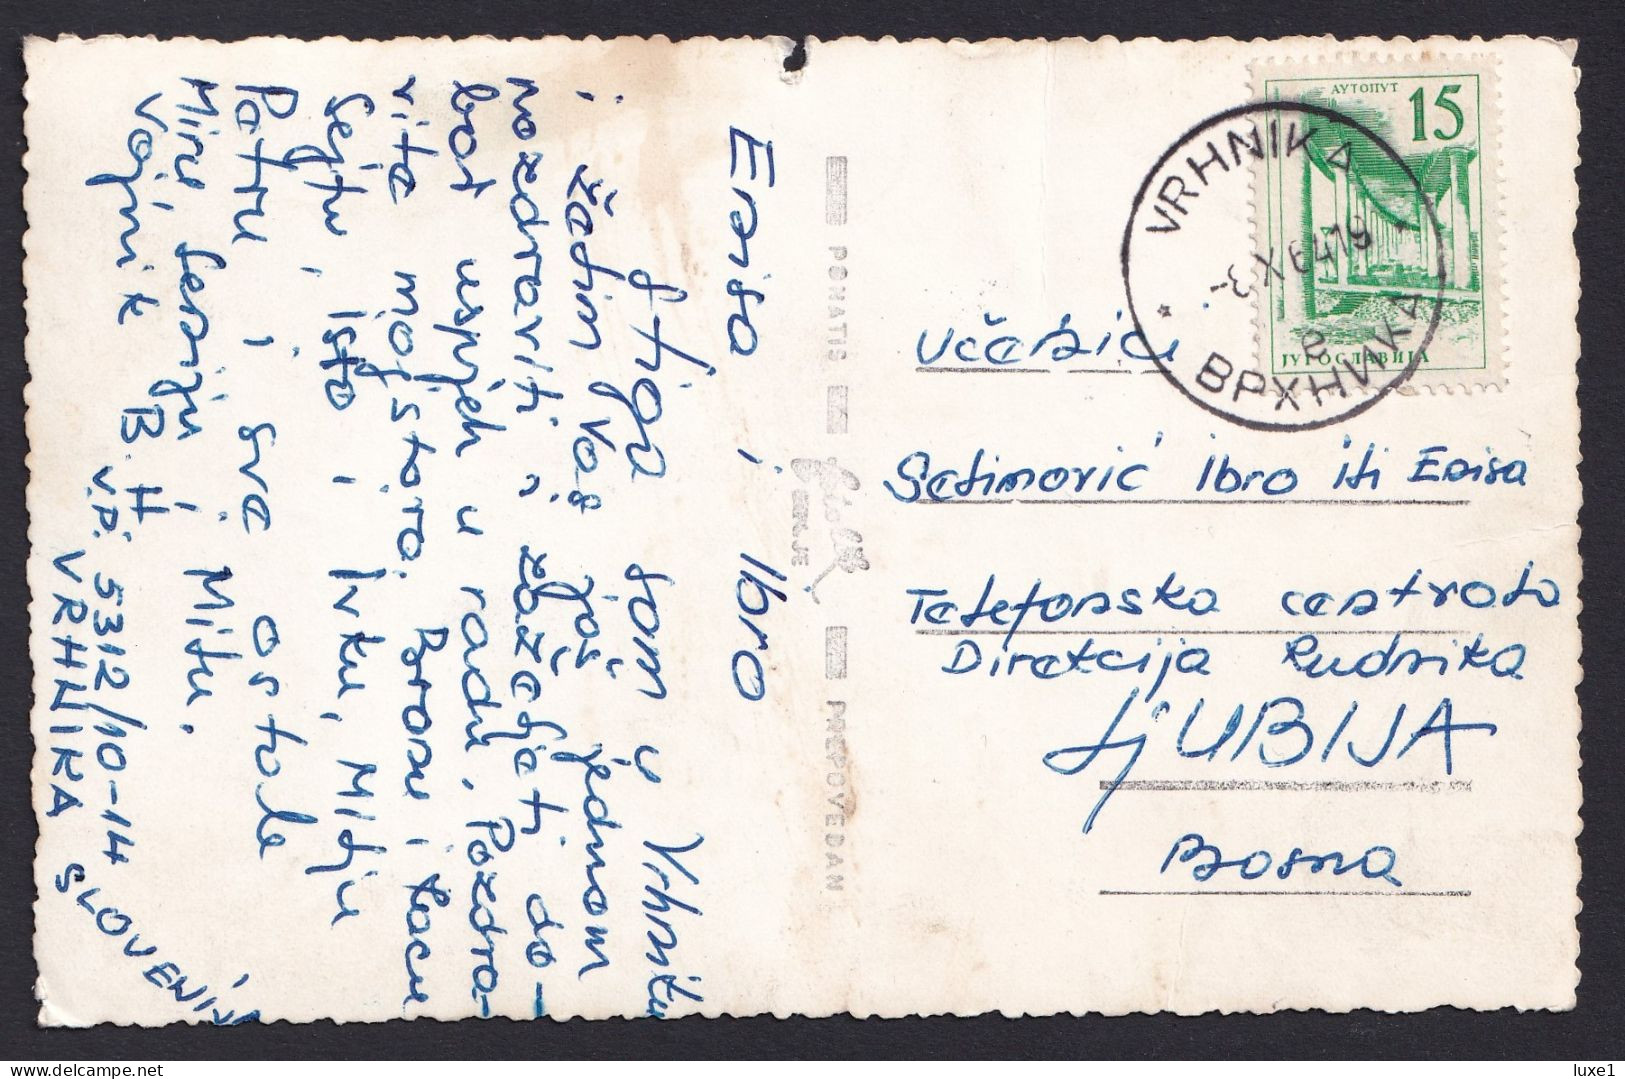 Enisa i Ibro
Stigo som u Vrhniku
i žetim Vas još jednom
pozdraviti i zaželjeti do-
bat uspjeh u radu. Pozdra-
vite mojstora Boronu i Racu
Sejtu, isto i Ivku, Milju
Petru i sve ostale
Miru Seniju i Mitu.
Vojnik B. H.
V.P. 5312/10-14
VRHNIKA SLOVENIJA
PONATIS
PREPOVEDAN
АУТОПУТ
15
ЈУГОСЛАВИЈА
VRHNIKA
-3.X.64 19
ВРХНИКА
Setimović Ibro iti Enisa
Telefonska centrata
Direkcija Rudnika
LJUBIJA
Bosna
luxe1